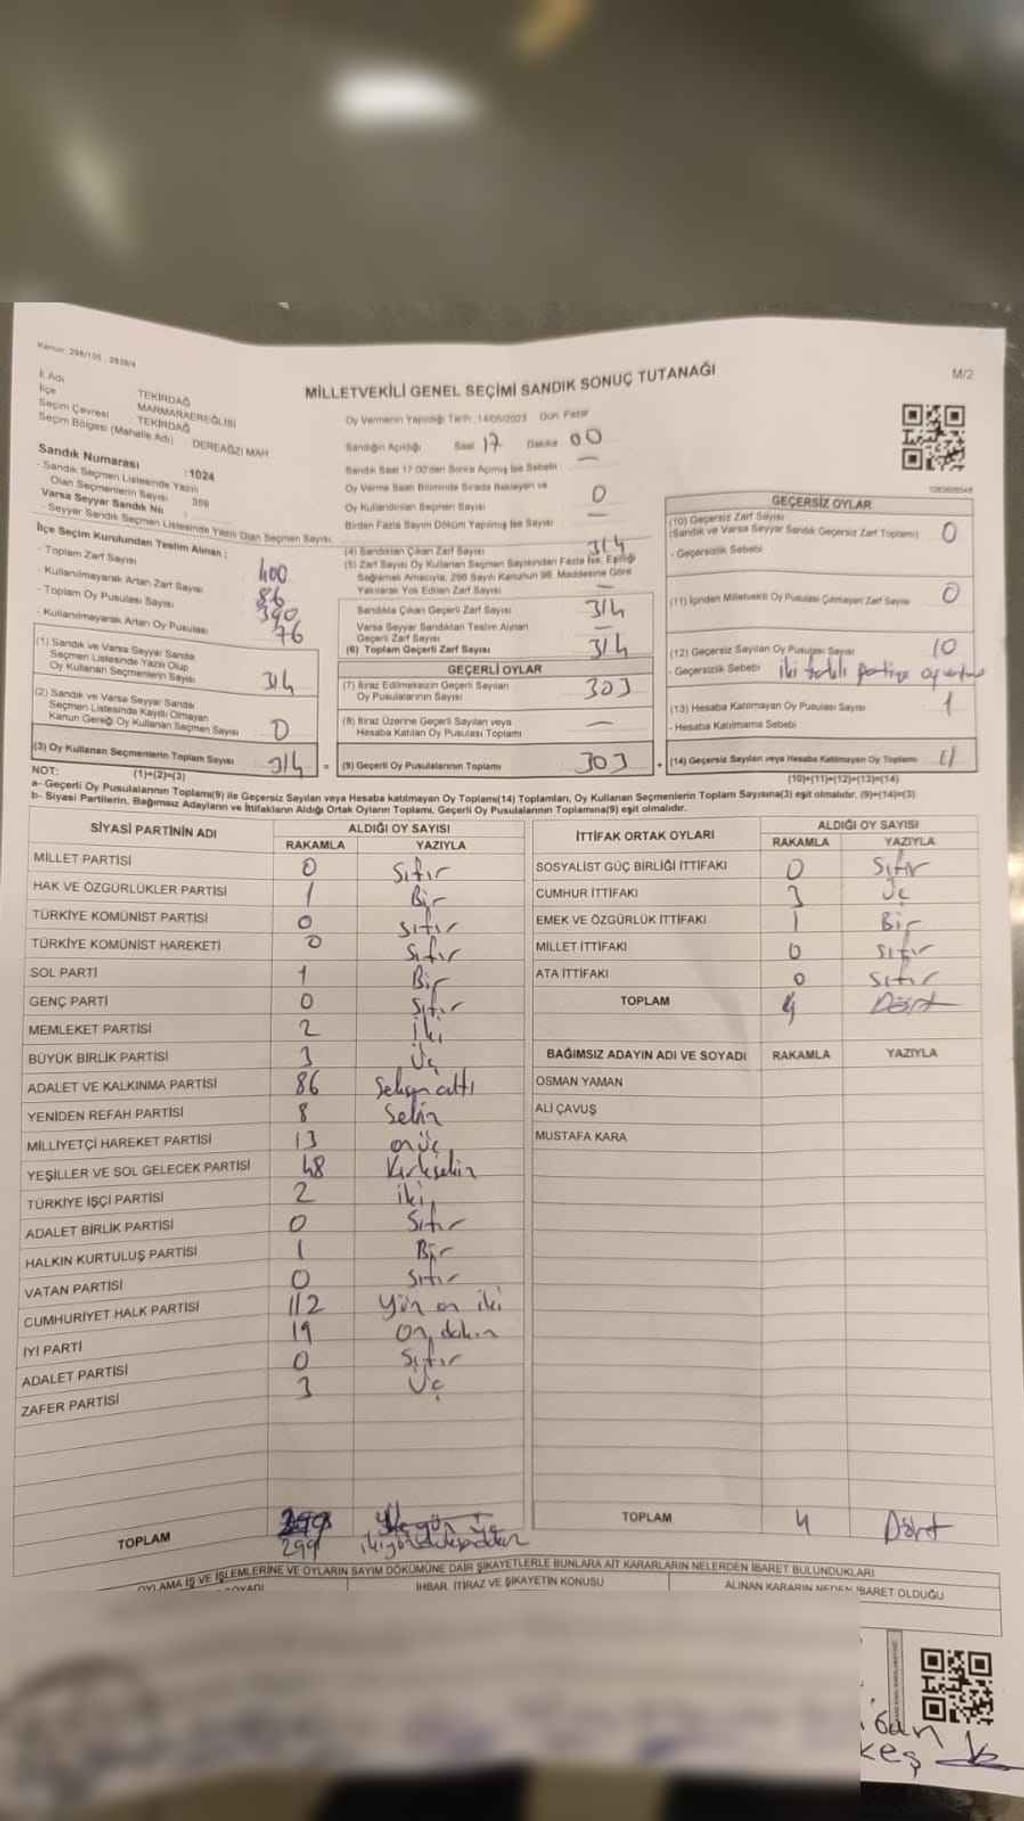 MİLLETVEKİLİ GENEL SEÇİMİ SANDIK SONUÇ TUTANAĞI
M/2
İl Adı TEKİRDAĞ
İlçe MARMARAEREĞLİSİ
Seçim Çevresi : TEKİRDAĞ
Seçim Bölgesi (Mahalle Adı) : DEREAĞZI MAH
Sandık Numarası : 1024
- Sandık Seçmen Listesinde Yazılı
Olan Seçmenlerin Sayısı
Varsa Seyyar Sandık No :
- Seyyar Sandık Seçmen Listesinde Yazılı Olan Seçmen Sayısı
İlçe Seçim Kurulundan Teslim Alınan :
- Toplam Zarf Sayısı 400
- Kullanılmayarak Artan Zarf Sayısı 86
- Toplam Oy Pusulası Sayısı 390
- Kullanılmayarak Artan Oy Pusulası 76
(1) Sandık ve Varsa Seyyar Sandık
Seçmen Listesinde Yazılı Olup
Oy Kullanan Seçmenlerin Sayısı 314
(2) Sandık ve Varsa Seyyar Sandık
Seçmen Listesinde Kayıtlı Olmayan
Kanun Gereği Oy Kullanan Seçmen Sayısı 0
(3) Oy Kullanan Seçmenlerin Toplam Sayısı 314 =
(1)+(2)=(3)
Oy Vermenin Yapıldığı Tarih : 14/05/2023 Gün: Pazar
Sandığın Açıldığı Saat 17 Dakika 00
Sandık Saat 17:00'den Sonra Açılmış İse Sebebi —
Oy Verme Saati Bitiminde Sırada Bekleyen ve
Oy Kullandırılan Seçmen Sayısı 0
Birden Fazla Sayım Döküm Yapılmış İse Sayısı —
(4) Sandıktan Çıkan Zarf Sayısı 314
(5) Zarf Sayısı Oy Kullanan Seçmen Sayısından Fazla İse, Eşitliği
Sağlamak Amacıyla, 298 Sayılı Kanunun 98. Maddesine Göre
Yakılarak Yok Edilen Zarf Sayısı —
Sandıkta Çıkan Geçerli Zarf Sayısı 314
Varsa Seyyar Sandıktan Teslim Alınan
Geçerli Zarf Sayısı —
(6) Toplam Geçerli Zarf Sayısı 314
GEÇERLİ OYLAR
(7) İtiraz Edilmeksizin Geçerli Sayılan
Oy Pusulalarının Sayısı 303
(8) İtiraz Üzerine Geçerli Sayılan veya
Hesaba Katılan Oy Pusulası Toplamı —
(9) Geçerli Oy Pusulalarının Toplamı 303 +
GEÇERSİZ OYLAR
(10) Geçersiz Zarf Sayısı
(Sandık ve Varsa Seyyar Sandık Geçersiz Zarf Toplamı) 0
- Geçersizlik Sebebi
(11) İçinden Milletvekili Oy Pusulası Çıkmayan Zarf Sayısı 0
(12) Geçersiz Sayılan Oy Pusulası Sayısı 10
- Geçersizlik Sebebi iki farklı partiye oy
(13) Hesaba Katılmayan Oy Pusulası Sayısı 1
- Hesaba Katılmama Sebebi
(14) Geçersiz Sayılan veya Hesaba Katılmayan Oy Toplamı 11
(10)+(11)+(12)+(13)=(14)
NOT:
a- Geçerli Oy Pusulalarının Toplamı(9) ile Geçersiz Sayılan veya Hesaba katılmayan Oy Toplamı(14) Toplamları, Oy Kullanan Seçmenlerin Toplam Sayısına(3) eşit olmalıdır, (9)+(14)=(3)
b- Siyasi Partilerin, Bağımsız Adayların ve İttifakların Aldığı Ortak Oyların Toplamı, Geçerli Oy Pusulalarının Toplamına(9) eşit olmalıdır.
SİYASİ PARTİNİN ADI ALDIĞI OY SAYISI
RAKAMLA YAZIYLA
MİLLET PARTİSİ 0 Sıfır
HAK VE ÖZGÜRLÜKLER PARTİSİ 1 Bir
TÜRKİYE KOMÜNİST PARTİSİ 0 Sıfır
TÜRKİYE KOMÜNİST HAREKETİ 0 Sıfır
SOL PARTİ 1 Bir
GENÇ PARTİ 0 Sıfır
MEMLEKET PARTİSİ 2 İki
BÜYÜK BİRLİK PARTİSİ 3 Üç
ADALET VE KALKINMA PARTİSİ 86 Seksen altı
YENİDEN REFAH PARTİSİ 8 Sekiz
MİLLİYETÇİ HAREKET PARTİSİ 13 onüç
YEŞİLLER VE SOL GELECEK PARTİSİ 48 Kırksekiz
TÜRKİYE İŞÇİ PARTİSİ 2 iki
ADALET BİRLİK PARTİSİ 0 Sıfır
HALKIN KURTULUŞ PARTİSİ 1 Bir
VATAN PARTİSİ 0 Sıfır
CUMHURİYET HALK PARTİSİ 112 Yüz on iki
İYİ PARTİ 19 On dokuz
ADALET PARTİSİ 0 Sıfır
ZAFER PARTİSİ 3 Üç
TOPLAM 299
İTTİFAK ORTAK OYLARI ALDIĞI OY SAYISI
RAKAMLA YAZIYLA
SOSYALİST GÜÇ BİRLİĞİ İTTİFAKI 0 Sıfır
CUMHUR İTTİFAKI 3 Üç
EMEK VE ÖZGÜRLÜK İTTİFAKI 1 Bir
MİLLET İTTİFAKI 0 Sıfır
ATA İTTİFAKI 0 Sıfır
TOPLAM 4 Dört
BAĞIMSIZ ADAYIN ADI VE SOYADI RAKAMLA YAZIYLA
OSMAN YAMAN
ALİ ÇAVUŞ
MUSTAFA KARA
TOPLAM 4 Dört
OYLAMA İŞ VE İŞLEMLERİNE VE OYLARIN SAYIM DÖKÜMÜNE DAİR ŞİKAYETLERLE BUNLARA AİT KARARLARIN NELERDEN İBARET BULUNDUKLARI
İHBAR, İTİRAZ VE ŞİKAYETİN KONUSU
ALINAN KARARIN NEDEN İBARET OLDUĞU